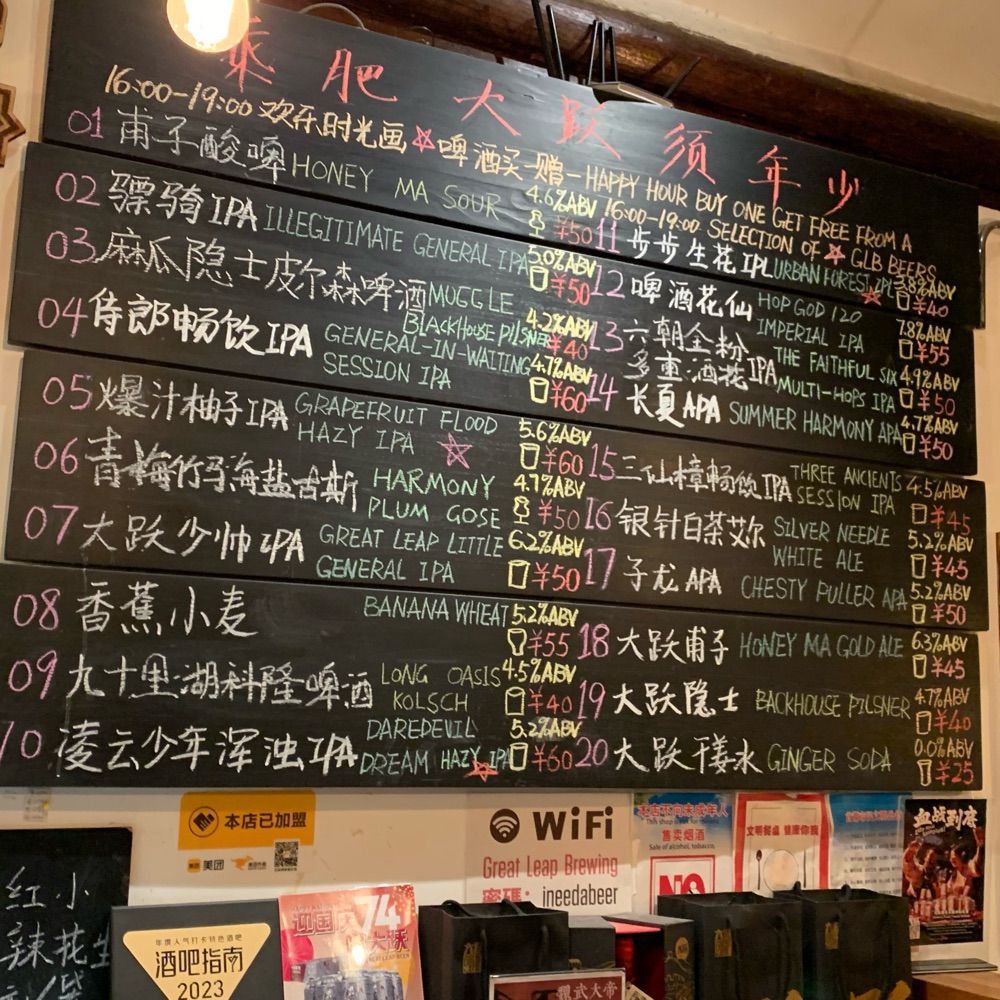 乘肥大跃须年少
16:00-19:00 欢乐时光画☆啤酒买一赠一 HAPPY HOUR BUY ONE GET FREE FROM A
16:00-19:00 SELECTION OF ☆ GLB BEERS
01 甫子酸啤 HONEY MA SOUR 4.6%ABV ¥50
02 骠骑IPA ILLEGITIMATE GENERAL IPA 5.0%ABV ¥50
03 麻瓜隐士皮尔森啤酒 MUGGLE BLACKHOUSE PILSNER 4.2%ABV ¥40
04 侍郎畅饮IPA GENERAL-IN-WAITING SESSION IPA 4.7%ABV ¥60
05 爆汁柚子IPA GRAPEFRUIT FLOOD HAZY IPA ☆ 5.6%ABV ¥60
06 青梅竹马海盐古斯 HARMONY PLUM GOSE 4.7%ABV ¥50
07 大跃少帅IPA GREAT LEAP LITTLE GENERAL IPA 6.2%ABV ¥50
08 香蕉小麦 BANANA WHEAT 5.2%ABV ¥55
09 九十里湖科隆啤酒 LONG OASIS KOLSCH 4.5%ABV ¥40
10 凌云少年浑浊IPA DAREDEVIL DREAM HAZY IPA ☆ 5.2%ABV ¥60
11 步步生花IPL URBAN FOREST IPL ☆ 5.8%ABV ¥40
12 啤酒花仙 HOP GOD 120 IMPERIAL IPA 7.8%ABV ¥55
13 六朝金粉多重酒花IPA THE FAITHFUL SIX MULTI-HOPS IPA 4.9%ABV ¥50
14 长夏APA SUMMER HARMONY APA 4.7%ABV ¥50
15 三仙樟畅饮IPA THREE ANCIENTS SESSION IPA 4.5%ABV ¥45
16 银针白茶艾尔 SILVER NEEDLE WHITE ALE 5.2%ABV ¥45
17 子龙APA CHESTY PULLER APA 5.2%ABV ¥50
18 大跃甫子 HONEY MA GOLD ALE 6.3%ABV ¥45
19 大跃隐士 BACKHOUSE PILSNER 4.7%ABV ¥40
20 大跃干姜水 GINGER SODA 0.0%ABV ¥25
本店已加盟
美团
WiFi
Great Leap Brewing
密碼: ineedabeer
本店不向未成年人
售卖烟酒
Sale of alcohol, tobacco,
NO
文明餐桌 健康你我
血战到底
红小
辣花生
年度人气打卡特色酒吧
酒吧指南
2023
迎国庆
14
大跃
觀武大帝